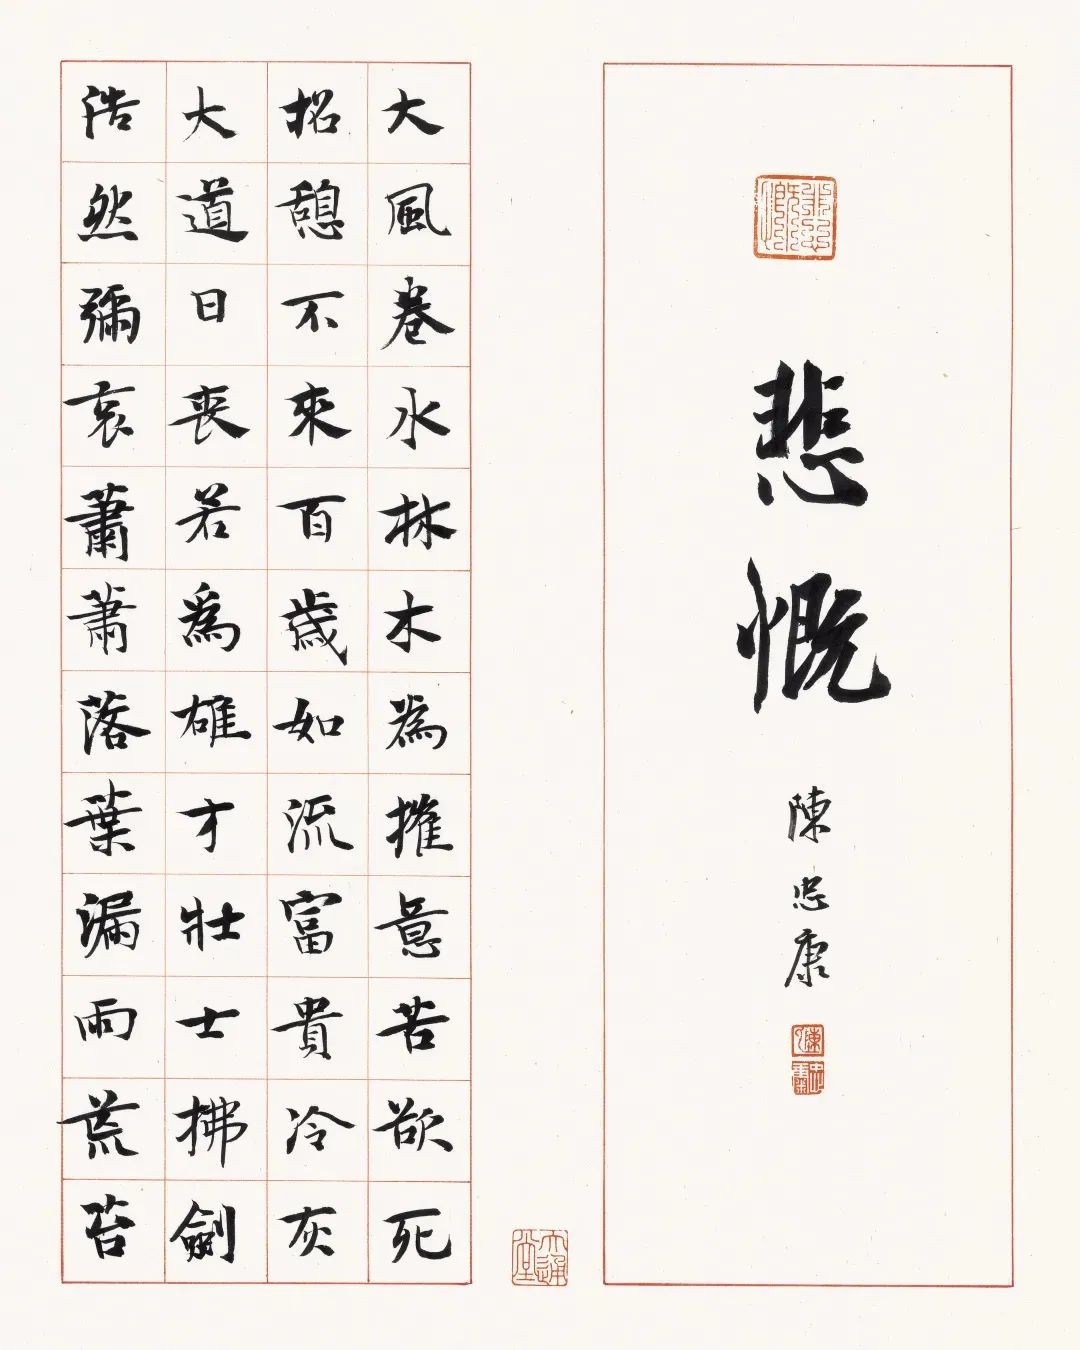 悲慨
陳忠康
大風卷水林木為摧意苦欲死
招憩不來百歲如流富貴冷灰
大道日喪若為雄才壯士拂劍
浩然彌哀蕭蕭落葉漏雨荒苔